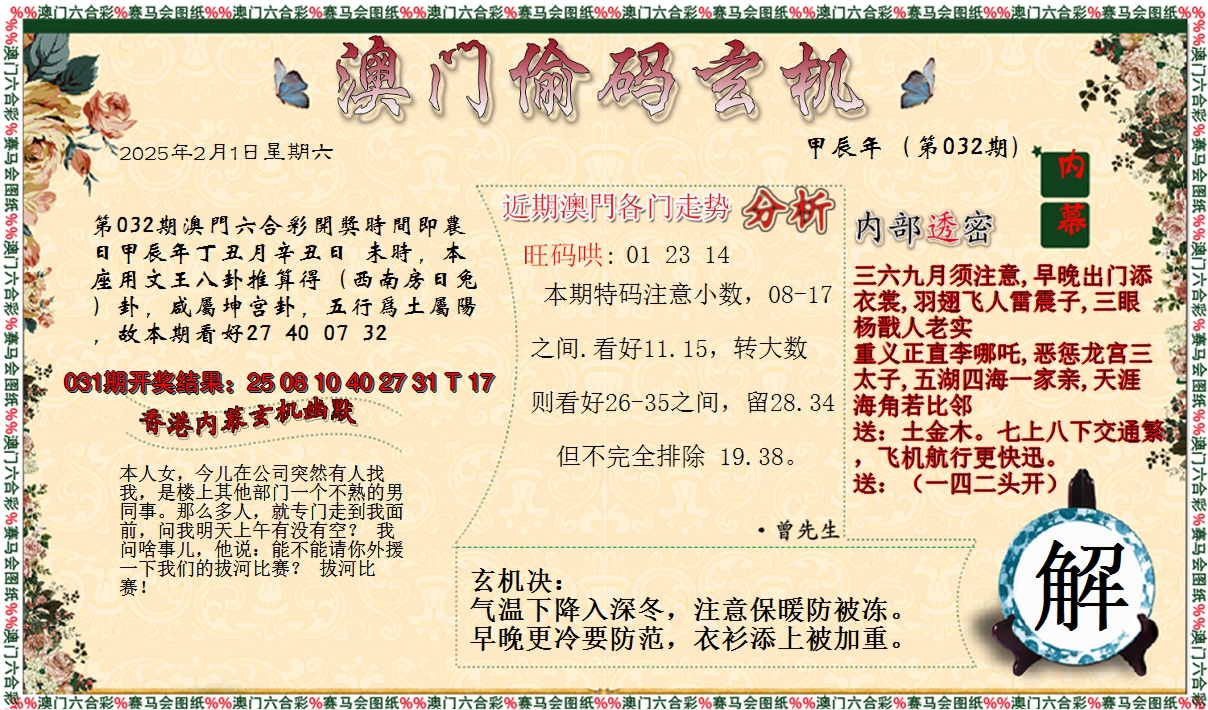 %%澳门六合彩%赛马会图纸%%澳门六合彩%赛马会图纸%%澳门六合彩%赛马会图纸%%澳门六合彩%赛马会图纸%%澳门六合彩%赛马会图纸%%澳门六合彩%赛马会图纸%%
澳门偷码玄机
2025年2月1日星期六
甲辰年（第032期）
第032期澳門六合彩開獎時間即農
日甲辰年丁丑月辛丑日 未時，本
座用文王八卦推算得（西南房日兔
）卦，咸屬坤宫卦，五行爲土屬陽
，故本期看好27 40 07 32
031期开奖结果：25 08 10 40 27 31 T 17
香港内幕玄机幽默
本人女，今儿在公司突然有人找
我，是楼上其他部门一个不熟的男
同事。那么多人，就专门走到我面
前，问我明天上午有没有空？ 我
问啥事儿，他说：能不能请你外援
一下我们的拔河比赛？ 拔河比
赛！
近期澳門各门走势 分析
旺码哄: 01 23 14
本期特码注意小数，08-17
之间.看好11.15，转大数
则看好26-35之间，留28.34
但不完全排除 19.38。
·曾先生
玄机决：
气温下降入深冬，注意保暖防被冻。
早晚更冷要防范，衣衫添上被加重。
内幕
内部透密
三六九月须注意,早晚出门添
衣裳,羽翅飞人雷震子,三眼
杨戬人老实
重义正直李哪吒,恶惩龙宫三
太子,五湖四海一家亲,天涯
海角若比邻
送：土金木。七上八下交通繁
，飞机航行更快迅。
送：（一四二头开）
解
%%澳门六合彩%赛马会图纸%%澳门六合彩%赛马会图纸%%澳门六合彩%赛马会图纸%%澳门六合彩%赛马会图纸%%澳门六合彩%赛马会图纸%%澳门六合彩%赛马会图纸%%